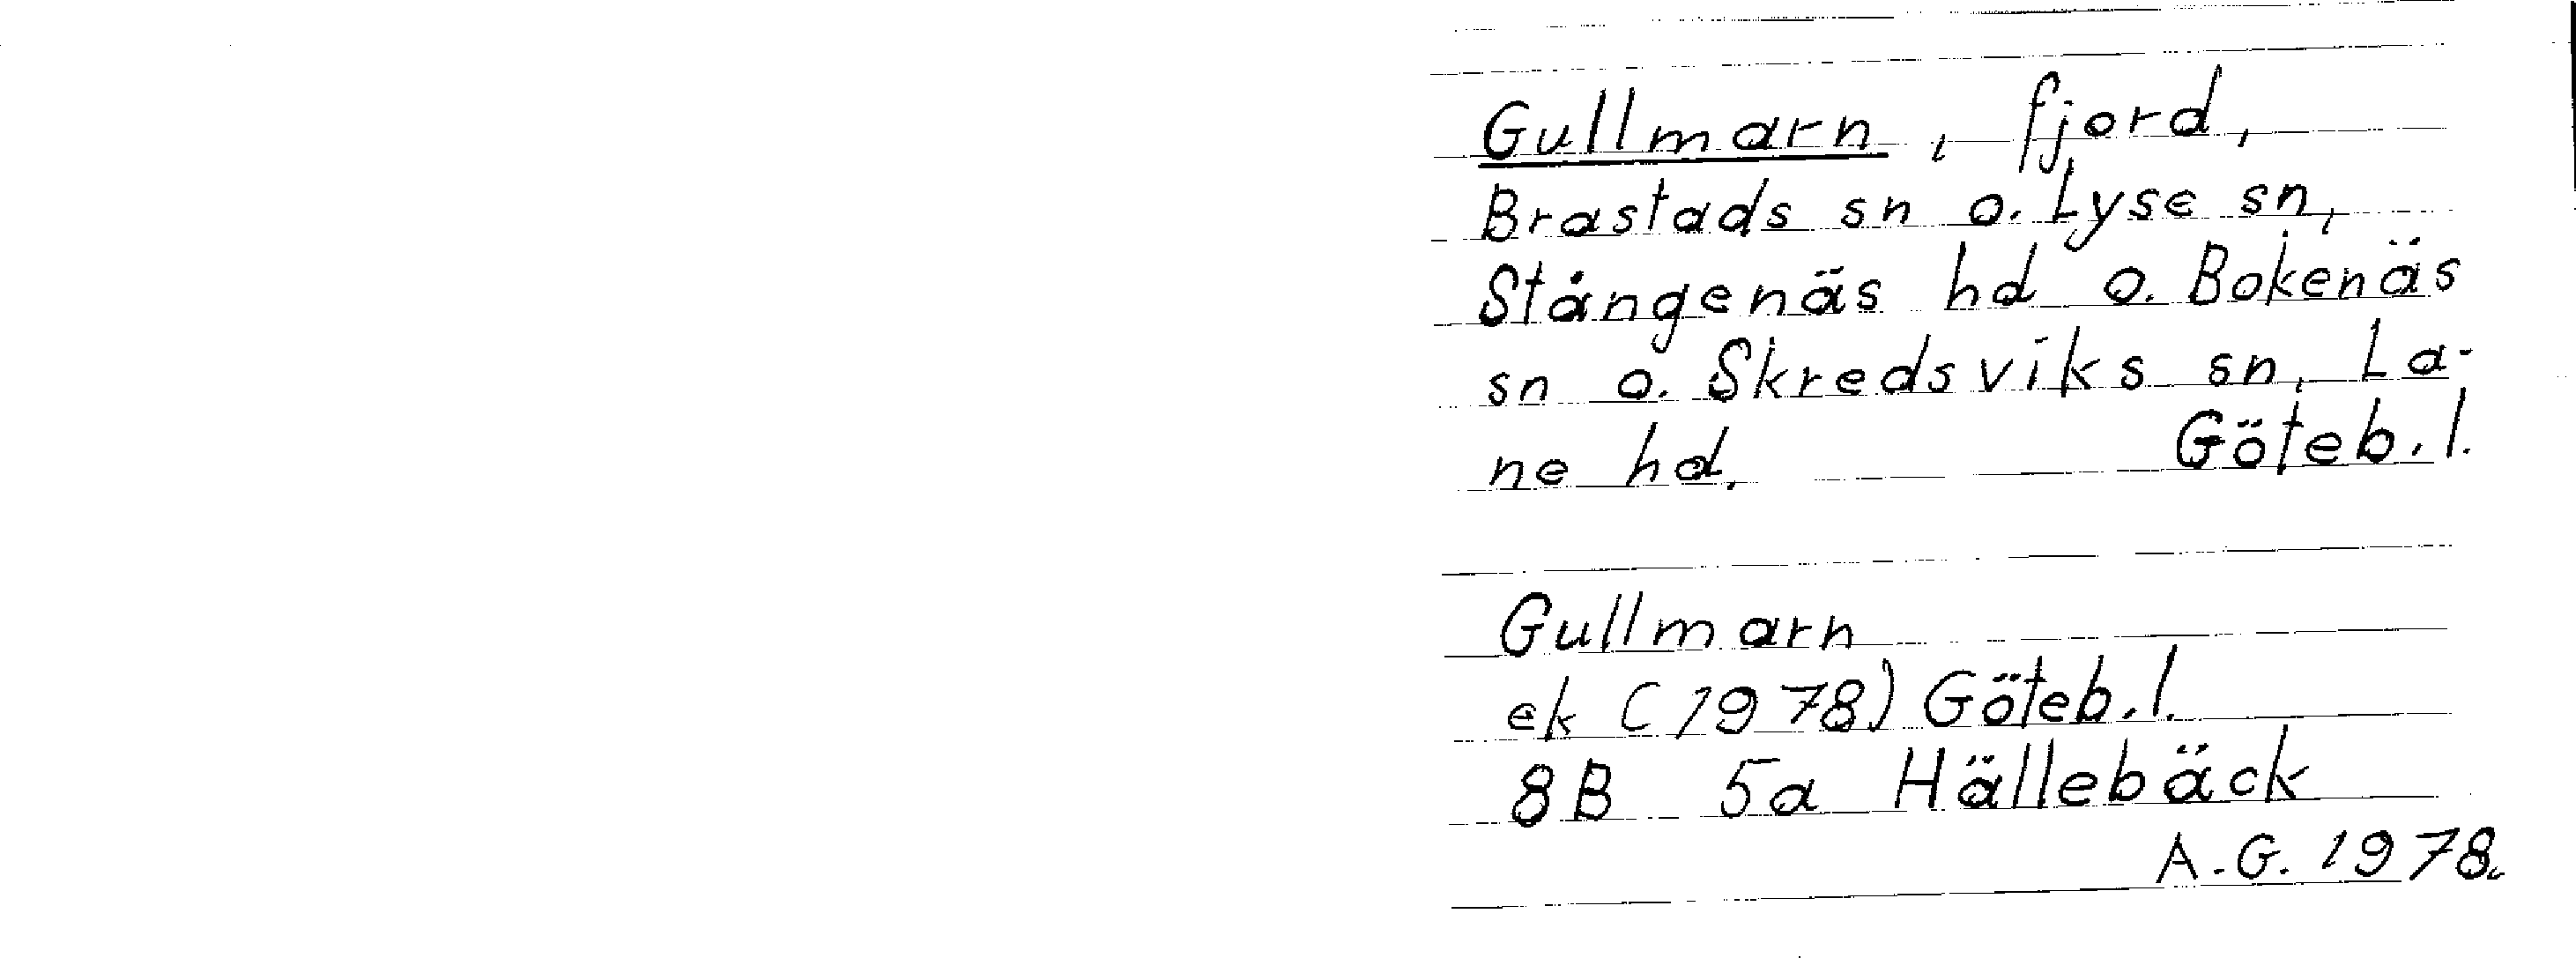 Gullmarn, fjord,
Brastads sn o. Lyse sn,
Stångenäs hd o. Bokenäs
sn o. Skredsviks sn, La-
ne hd. Göteb.l.
Gullmarn
ek (1978) Göteb.l.
8B 5a Hällebäck
A.G. 1978.